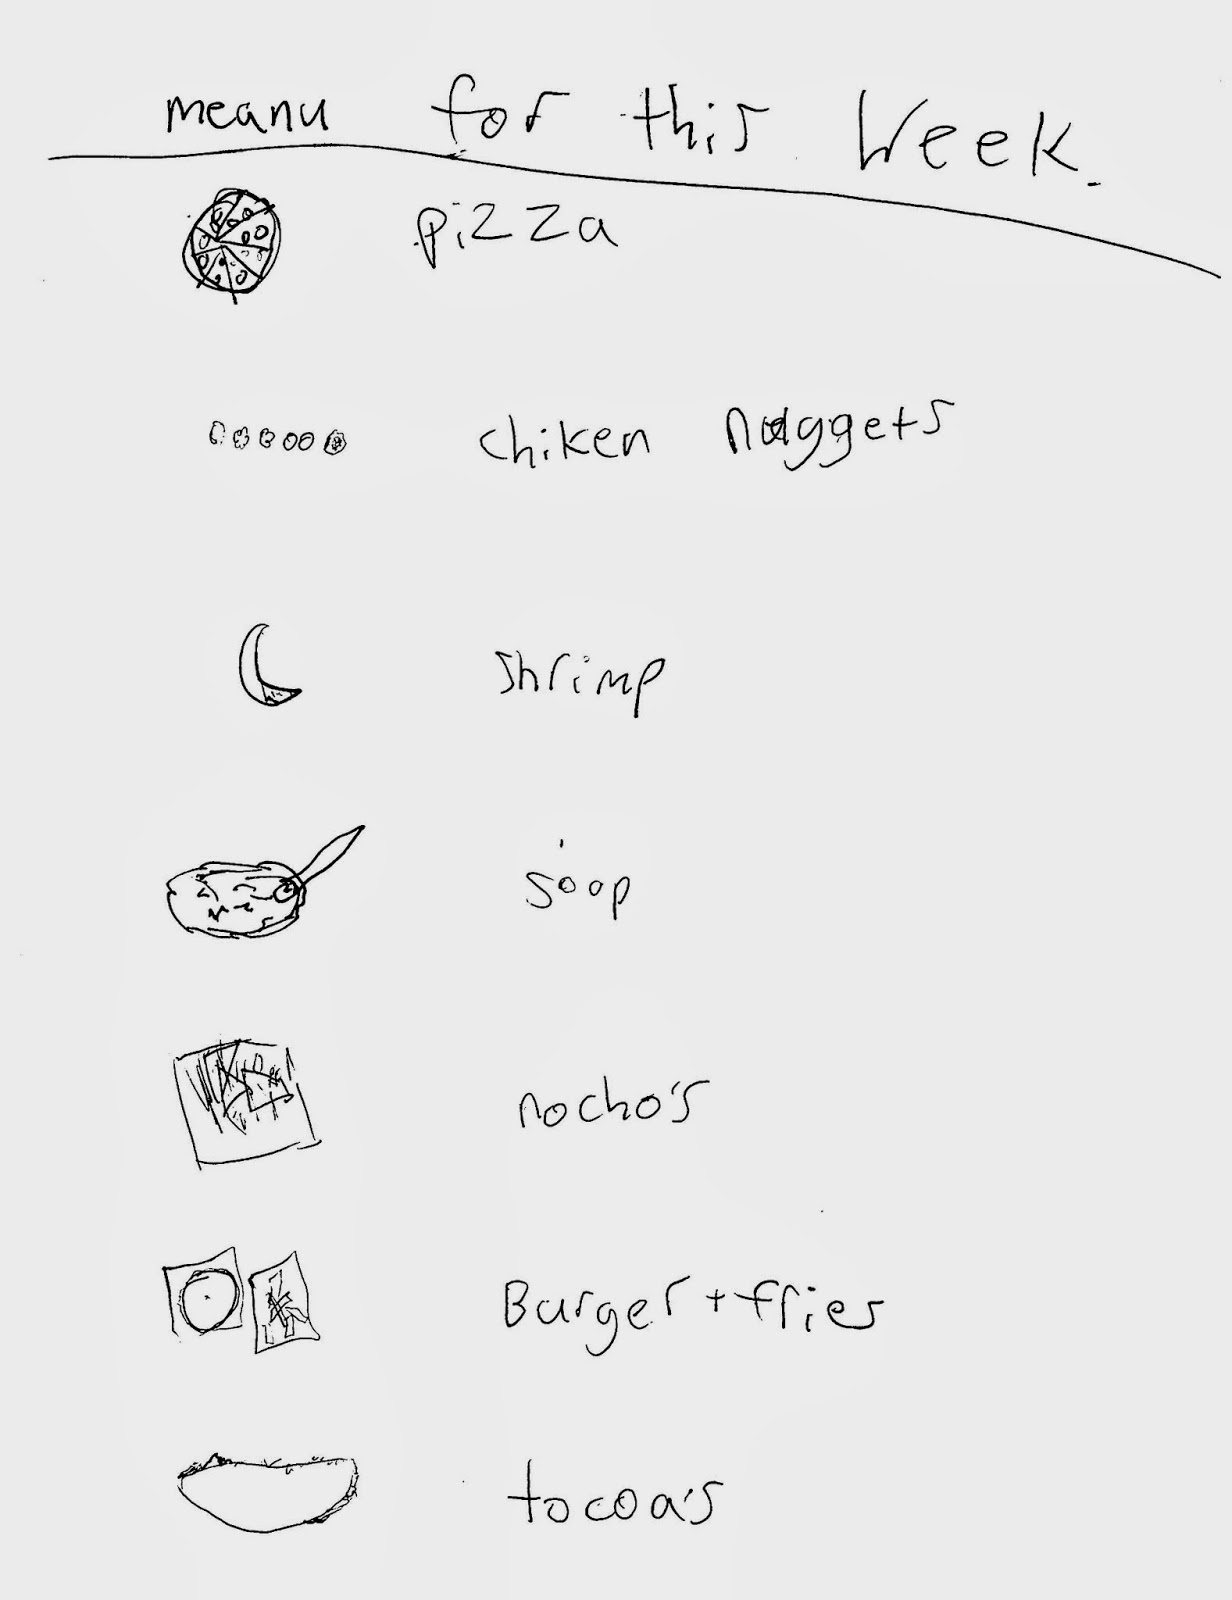 meanu for this Week.
pizza
chiken nuggets
shrimp
soop
nocho's
Burger + fries
tocoa's